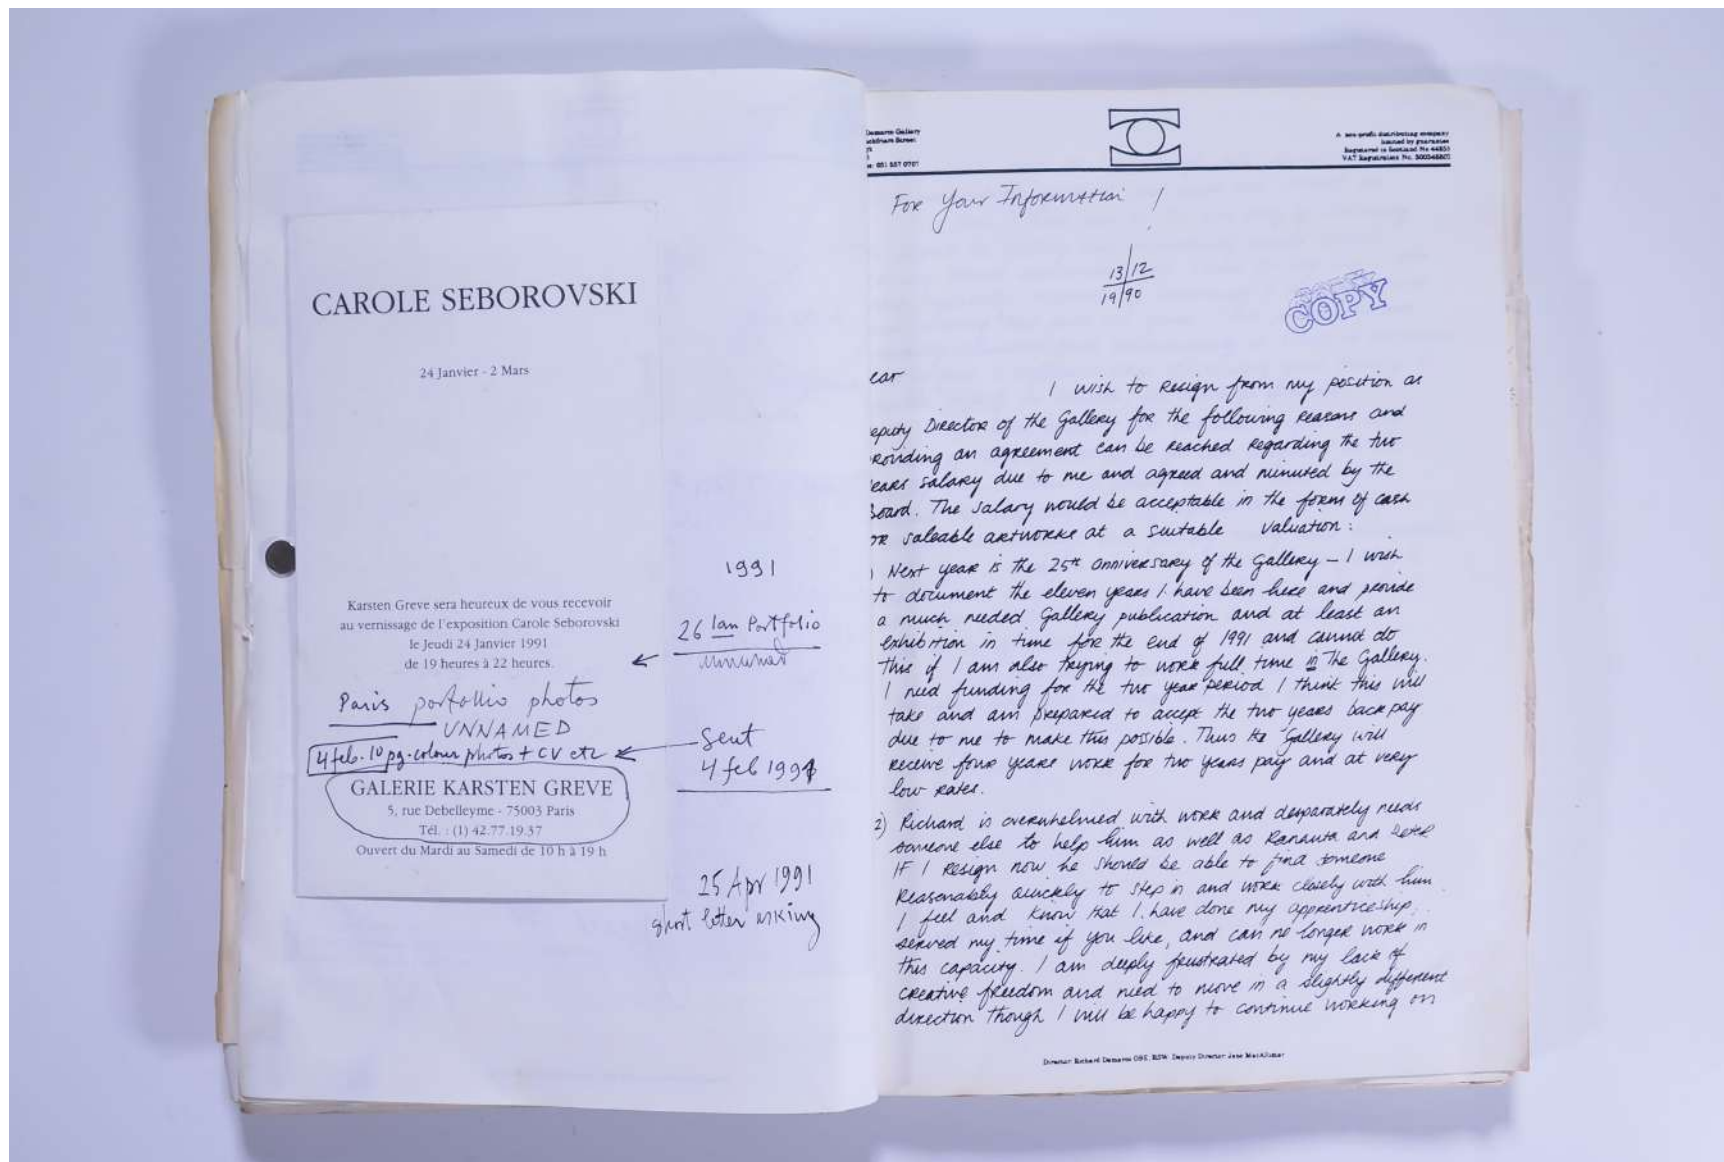 CAROLE SEBOROVSKI
24 Janvier - 2 Mars
Karsten Greve sera heureux de vous recevoir
au vernissage de l'exposition Carole Seborovski
le Jeudi 24 Janvier 1991
de 19 heures à 22 heures.
Paris portfolio photos
UNNAMED
4 feb. 10 pg. colour photos + CV etc
GALERIE KARSTEN GREVE
5, rue Debelleyme - 75003 Paris
Tél. : (1) 42.77.19.37
Ouvert du Mardi au Samedi de 10 h à 19 h
1991
26 Ian Portfolio
unnunad
Sent
4 feb 1991
25 Apr 1991
short letter asking
Demarco Gallery
Street
031 557 0707
A non-profit distributing company
limited by guarantee
Registered in Scotland No
VAT Registration No.
For Your Information !
13/12
19/90
COPY
ear
I wish to resign from my position as
eputy Director of the Gallery for the following reasons and
roviding an agreement can be reached regarding the two
ears salary due to me and agreed and minuted by the
Board. The salary would be acceptable in the form of cash
or saleable artworks at a suitable valuation :
) Next year is the 25th anniversary of the Gallery – I wish
to document the eleven years I have been here and provide
a much needed Gallery publication and at least an
exhibition in time for the end of 1991 and cannot do
this if I am also trying to work full time in the Gallery.
I need funding for the two year period I think this will
take and am prepared to accept the two years back pay
due to me to make this possible. Thus the Gallery will
receive four years work for two years pay and at very
low rates.
2) Richard is overwhelmed with work and desparately needs
someone else to help him as well as and
IF I resign now he should be able to find someone
reasonably quickly to step in and work closely with him.
I feel and know that I have done my apprenticeship,
served my time if you like, and can no longer work in
this capacity. I am deeply frustrated by my lack of
creative freedom and need to move in a slightly different
direction though I will be happy to continue working on
Director: Richard Demarco OBE, RSW Deputy Director: Jane MacAllister